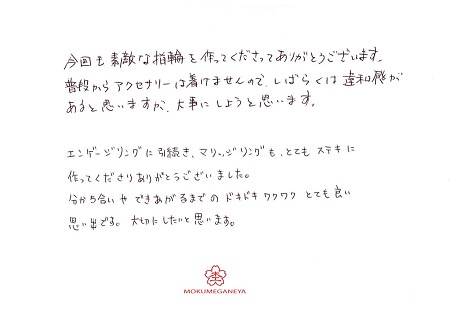 今回も素敵な指輪を作ってくださってありがとうございます。
普段からアクセサリーは着けませんので、しばらくは違和感が
あると思いますが、大事にしようと思います。
エンゲージリングに引続き、マリッジリングも、とてもステキに
作ってくださりありがとうございました。
分かち合いやできあがるまでのドキドキワクワクとても良い
思い出です。大切にしたいと思います。
MOKUMEGANEYA